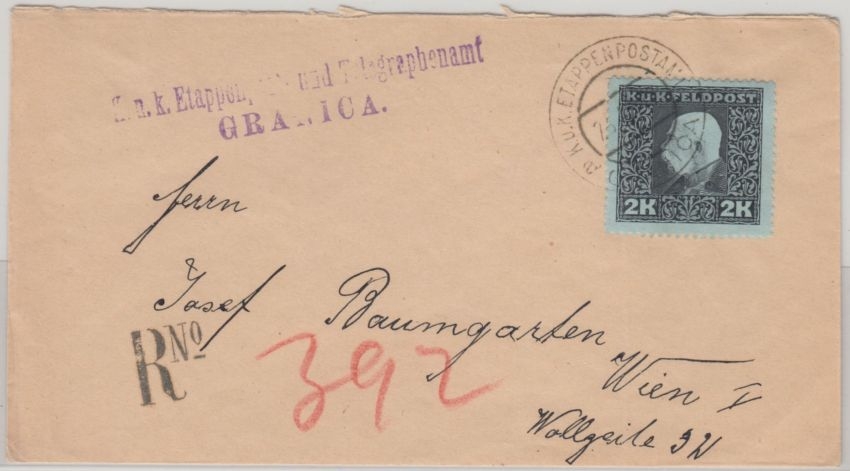 K.u.k. Etappen und Telegraphenamt
GRANICA.
K.U.K. ETAPPENPOSTAM
K.u.K. FELDPOST
2K 2K
Herrn
Josef Baumgarten
RNo 392
Wien I
Wollzeile